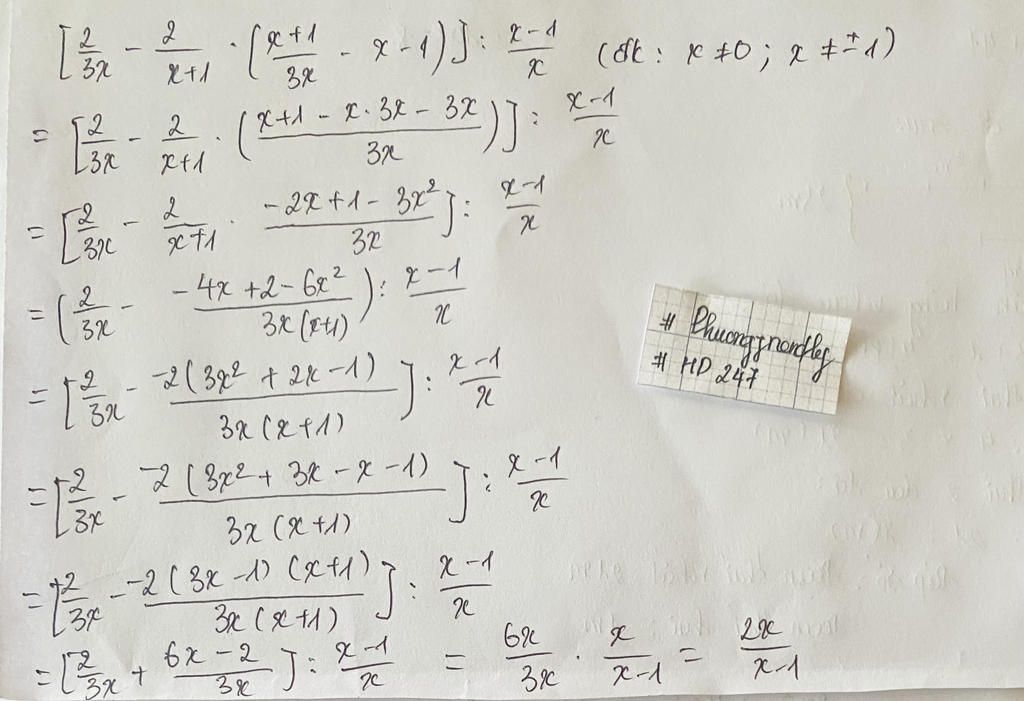 [2/3x - 2/x+1 · (x+1/3x - x - 1)] : x-1/x (đk : x ≠ 0 ; x ≠ ± 1)
= [2/3x - 2/x+1 · (x+1 - x · 3x - 3x/3x)] : x-1/x
= [2/3x - 2/x+1 · -2x+1-3x²/3x] : x-1/x
= (2/3x - -4x+2-6x²/3x(x+1)) : x-1/x
= [2/3x - -2(3x²+2x-1)/3x(x+1)] : x-1/x
= [2/3x - -2(3x²+3x-x-1)/3x(x+1)] : x-1/x
= [2/3x - -2(3x-1)(x+1)/3x(x+1)] : x-1/x
= [2/3x + 6x-2/3x] : x-1/x = 6x/3x · x/x-1 = 2x/x-1
#
# HD 247